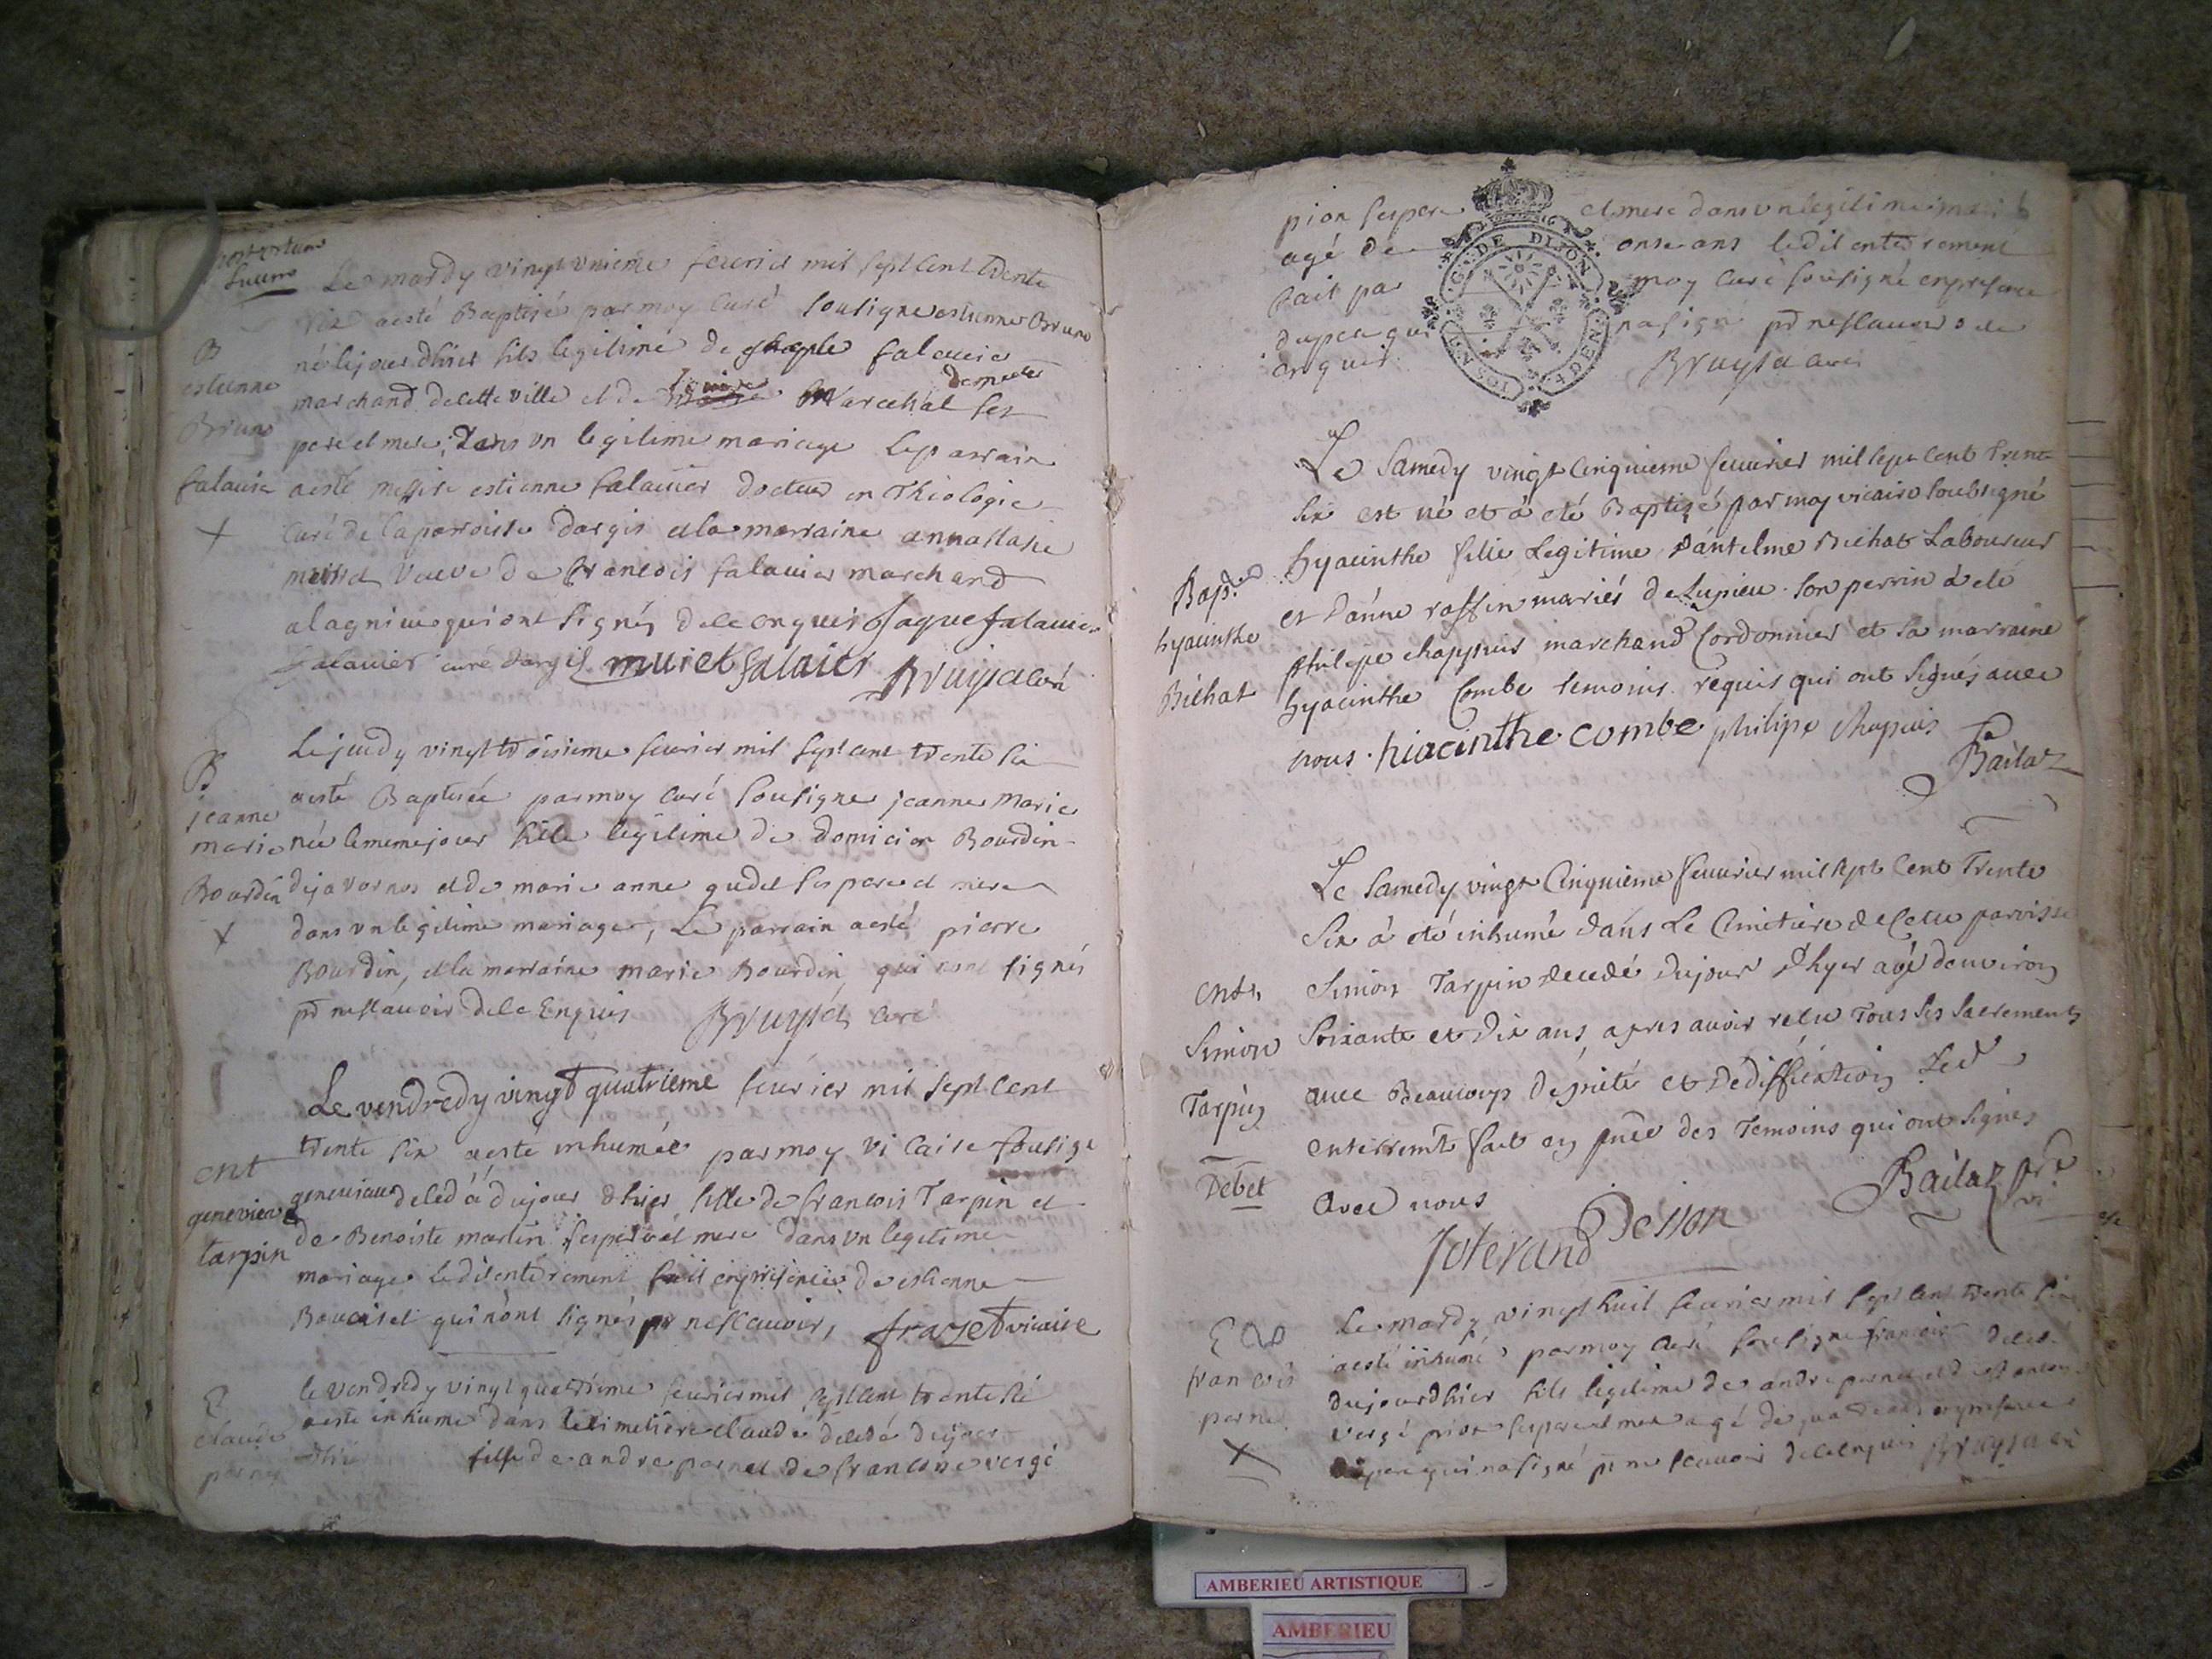 Le mardy vingt unieme feurier mil sept cent trente
six aesté Baptisé par moy curé sousigne estienne Bruno
né le jour dhier fils legitime de falauier
marchand de cette ville et de louise Marechal ses
pere et mere, dans un legitime mariage le parrain
aesté messire estienne falauier docteur en Theologie
curé de la parroisse dargis et la marraine annastasie
muriet veuve de francois falauier marchand
a lagnieu qui ont signés de ce enquis Jaque falauier
falauier curé dargis muriet falauier Bruyset curé
B
estienne
Bruno
falauier
X
Le jeudy vingt troisieme feurier mil sept cent trente six
aesté Baptisée par moy curé sousigne jeanne marie
née le meme jour fille legitime de domician Bourdin
de javornos et de marie anne gudet ses pere et mere
dans un legitime mariage, Le parrain aesté pierre
Bourdin, et la marraine marie Bourdin, qui signés
pr ne scauoir de ce Enquis Bruyset curé
B
jeanne
marie
Bourdin
X
Le vendredy vingt quatrieme feurier mil sept cent
trente six aesté inhumée par moy vicaire sousigé
geneuieue deled à dujour dhier, fille de francois Tarpin et
de Benoiste martin ses pere et mere dans un legitime
mariage ledit enterement fait en presence de estienne
qui n'ont signés pr ne scauoir, frazet vicaire
ent
genevieve
tarpin
le vendredy vingt quatrieme feurier mil sept cent trente six
aesté inhumé dans le cimetiere claude decedé du jour
dhier fille de andre pernet de francoise vergé
E
claude
perny
pion ses pere et mere dans un legitime
agé de onse ans ledit enterrement
fait par moy curé sousigné en presence
du pere qui na signé pr ne scauoir de
ce quis. Bruyset curé
Le Samedy vingt Cinquieme feurier mil sept cent trente
six est né et à eté Baptisé par moy vicaire soubsigné
hyacinthe fille Legitime d'antelme Bichat Laboureur
et d'anne roffin mariés de Lupieu. son perrin à eté
philipe chappuis marchand Cordonnier et sa marraine
hyacinthe Combe temoins requis qui ont signés avec
nous. hiacinthe combe philipe Chapuis
Bailat
Bap.
hyacinthe
Bichat
Le Samedy vingt Cinquieme feurier mil sept Cent Trente
Six à eté inhumé dans Le Cimetiere de Cette paroisse
Simon Tarpin decedé dujour d'hyer agé denviron
Soixante et dix ans, apres avoir recu Tous ses sacrements
avec Beaucoup de pieté et d'ediffication Led
enterremt fait en pnce des Temoins qui ont signes
avec nous Bailat pre
vi.
Joterand Desson
ent
Simon
Tarpin
Debet
Le mardy vingt huit feurier mil sept cent trente six
aesté inhumé par moy curé sousigne francois decedé
dujourdhier fils legitime de andre pernet et de
vergé pion ses pere et mere agé de en presence
du pere qui na signé pr ne scauoir de ce enquis Bruyset curé
E
francois
perne
X
G. DE DIJON
AMBERIEU ARTISTIQUE
AMBERIEU